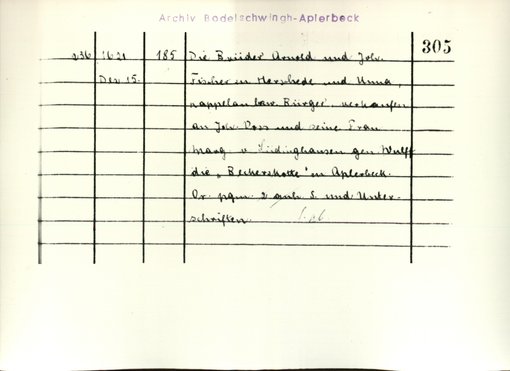 Archiv Bodelschwingh-Aplerbeck
305
236 1621 185 Die Brüder Arnold und Joh.
Dez 15. Fischer in Herschede und Unna,
Kappelan bzw. Bürger, verkaufen
an Joh. Voss und seine Frau
Marg. v. Lüdinghausen gen. Wulff
die "Beckerskotte" in Aplerbeck.
Or. pgm. 2 anh. S. und Unter-
schriften.